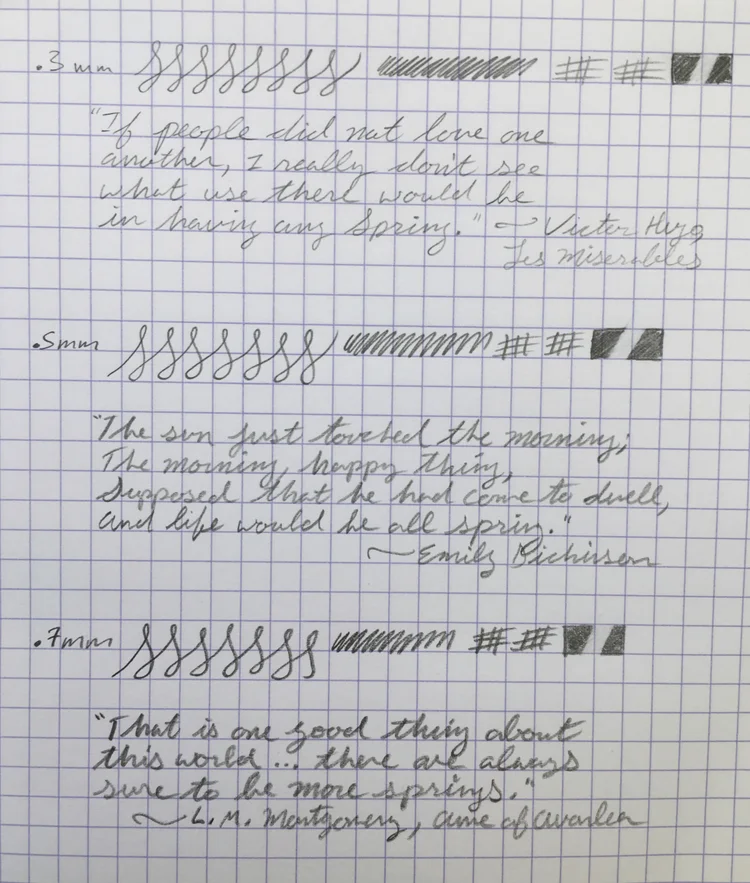 .3 mm
"If people did not love one
another, I really don't see
what use there would be
in having any Spring." ~ Victor Hugo,
Les Miserables
.5mm
"The sun just touched the morning;
The morning, happy thing,
Supposed that he had come to dwell,
and life would be all spring."
~Emily Dickinson
.7mm
"That is one good thing about
this world... there are always
sure to be more springs."
~L. M. Montgomery, Anne of Avonlea